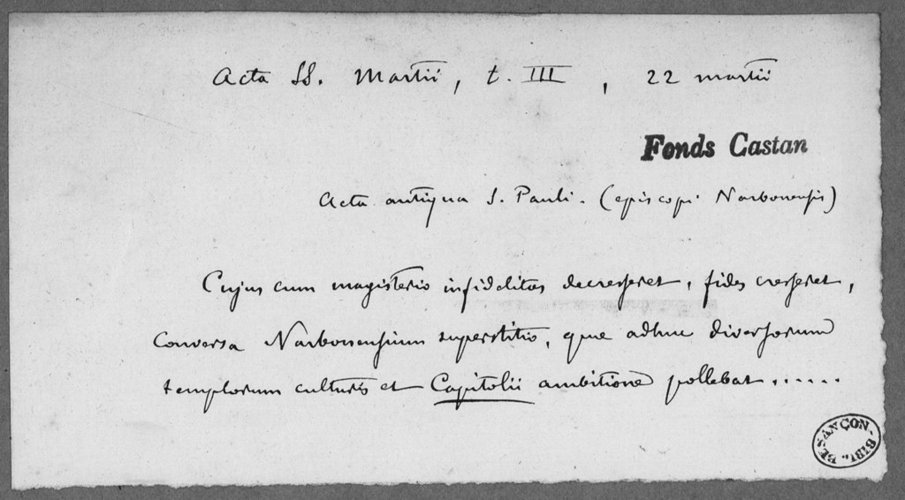 Acta SS. Martii, t. III, 22 martii
Fonds Castan
Acta antiqua S. Pauli. (episcopi Narbonensis)
Cujus cum magisterio infidelitas decresseret, fides cresseret,
conversa Narbonensium superstitio, quae adhuc diversorum
templorum culturis et Capitolii ambitione pollebat......
BESANÇON. BIBL.